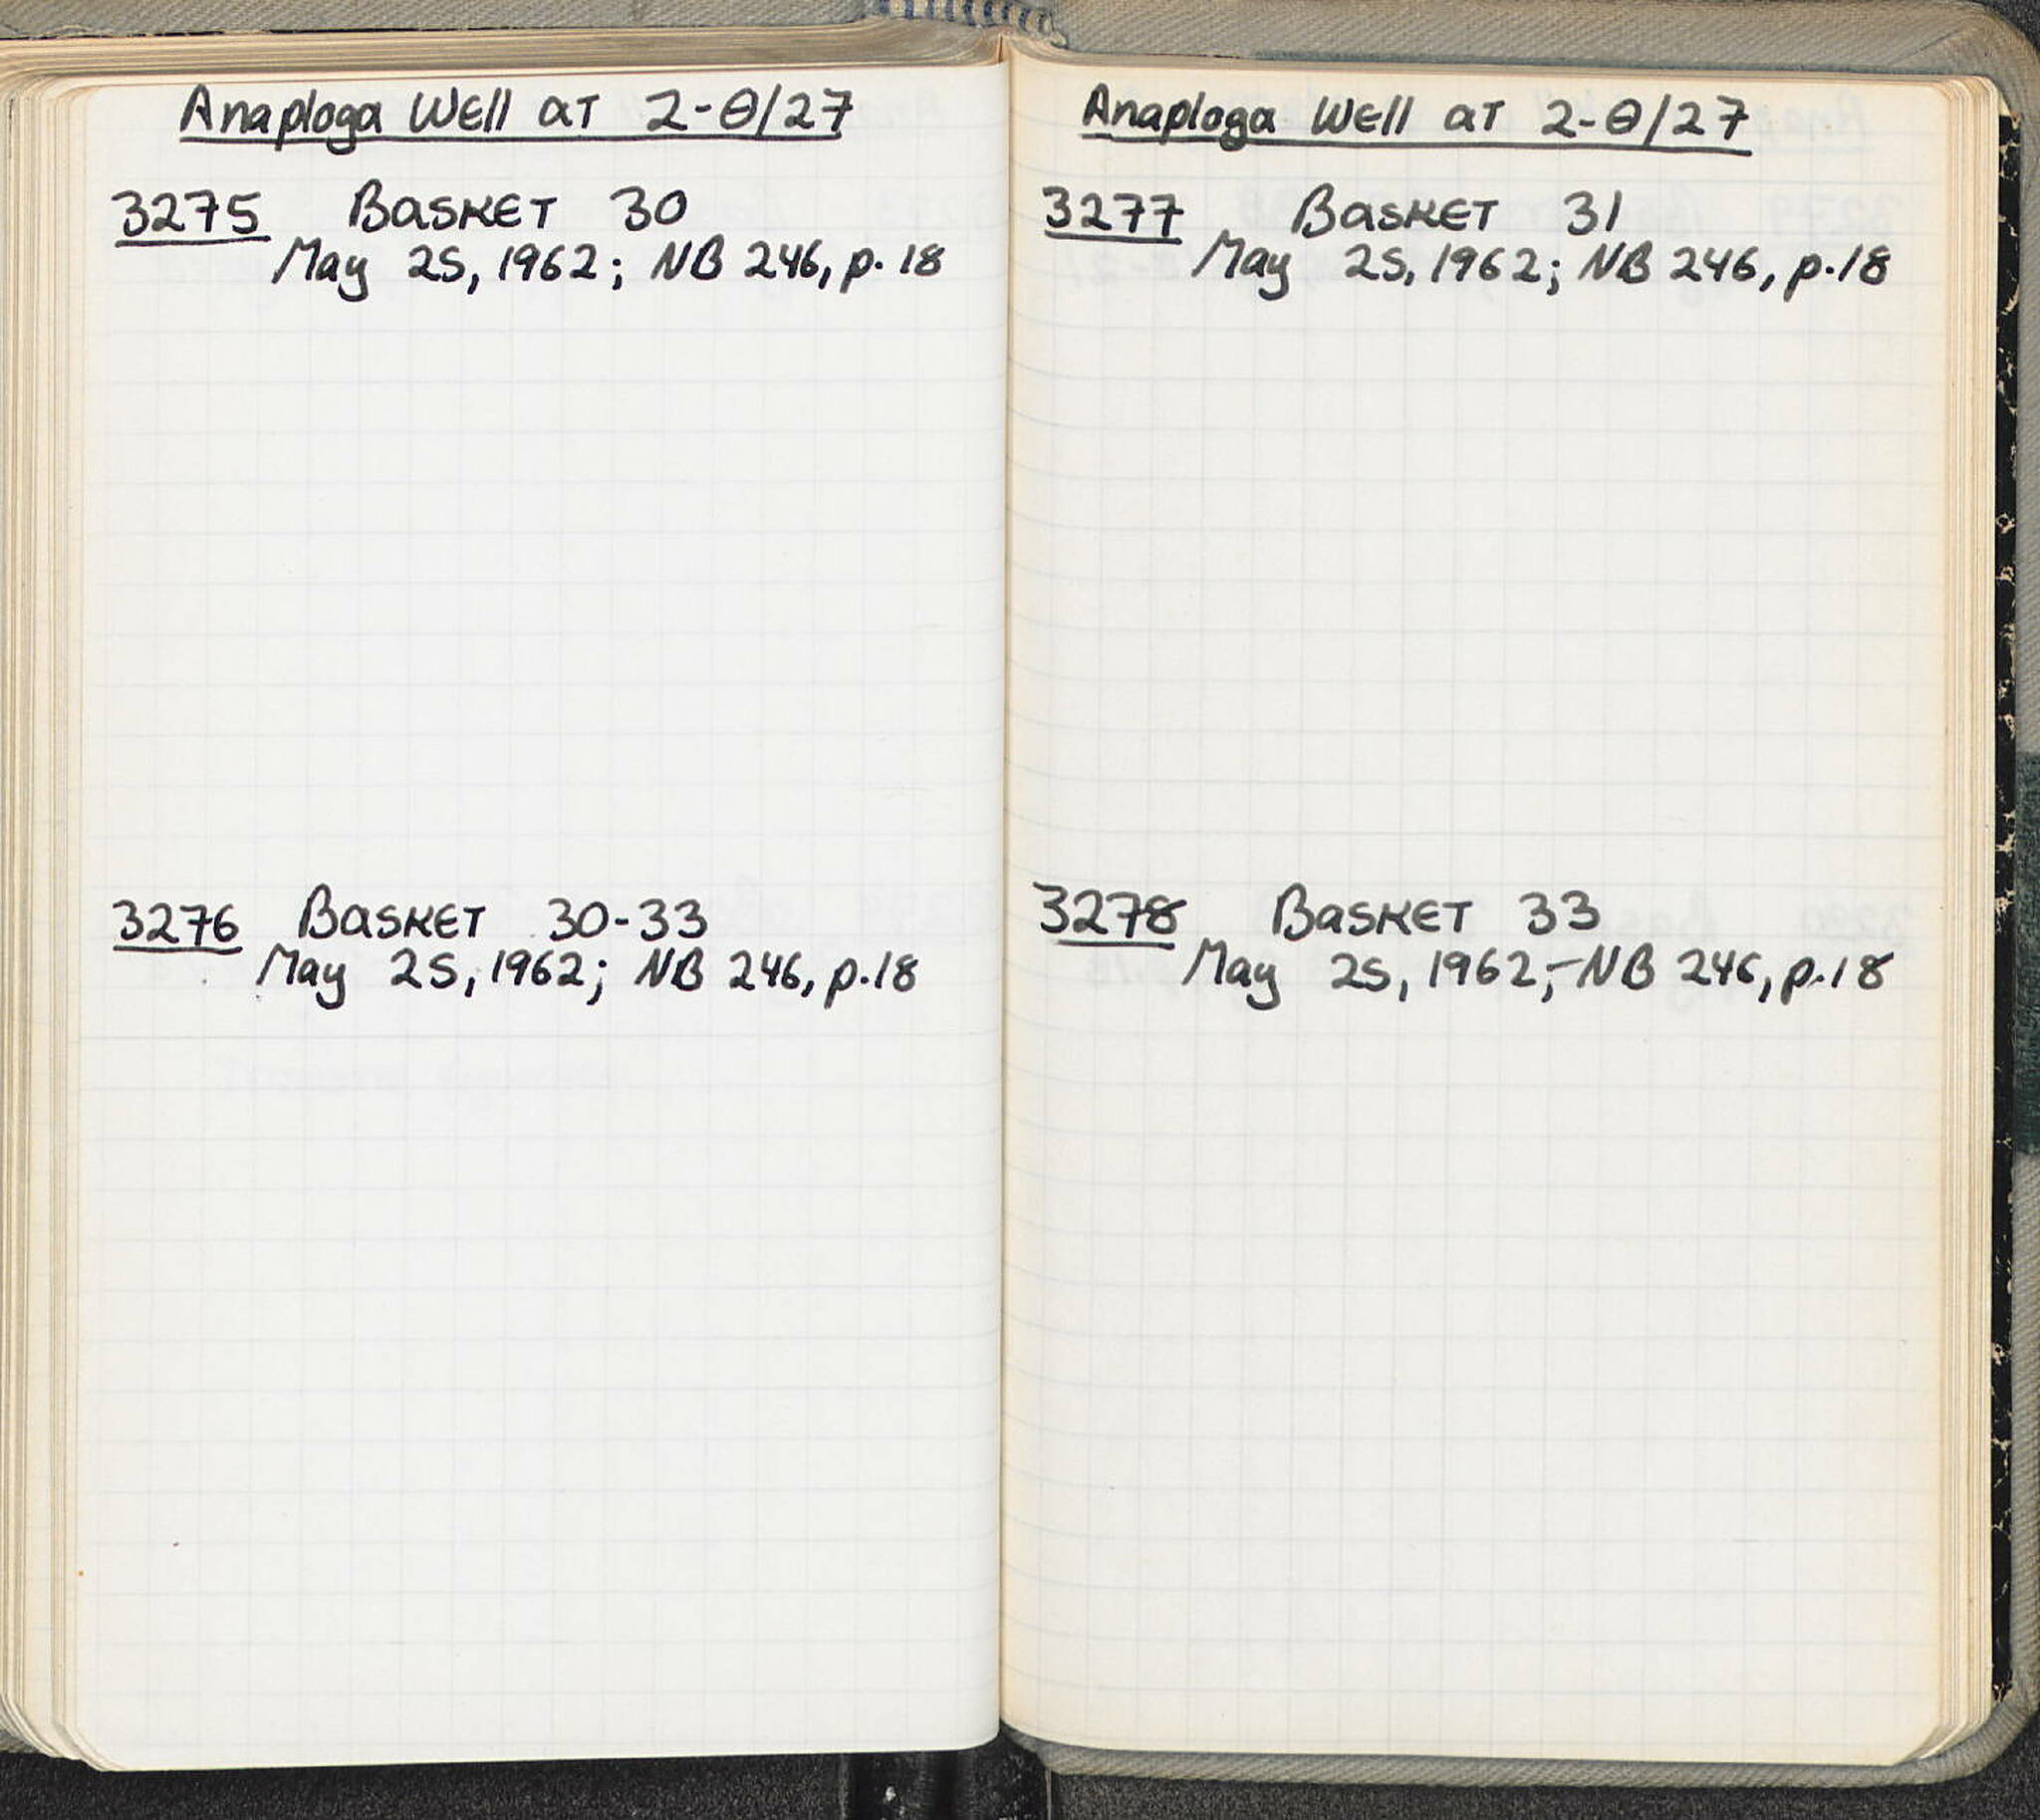 Anaploga Well at 2-Θ/27
3275 Basket 30
May 25, 1962; NB 246, p. 18
3276 Basket 30-33
May 25, 1962; NB 246, p.18
Anaploga Well at 2-Θ/27
3277 Basket 31
May 25, 1962; NB 246, p.18
3278 Basket 33
May 25, 1962; NB 246, p.18